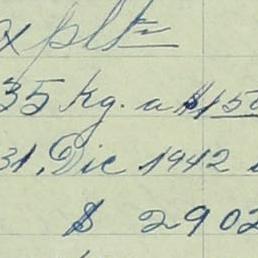 35 kg. a $150
31. Dic 1942
$ 2902